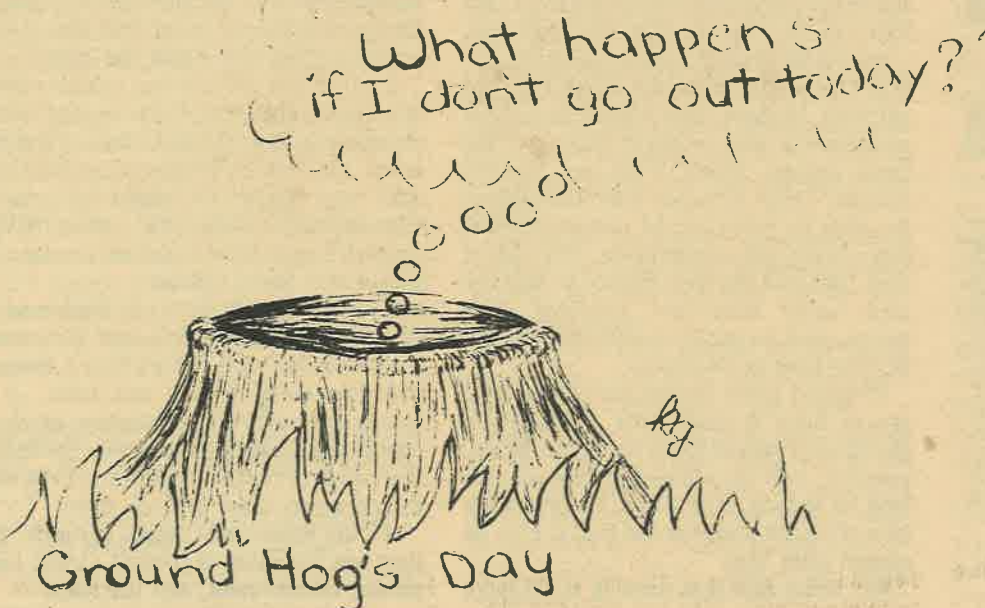 What happens
if I don't go out today?
Ground Hog's Day